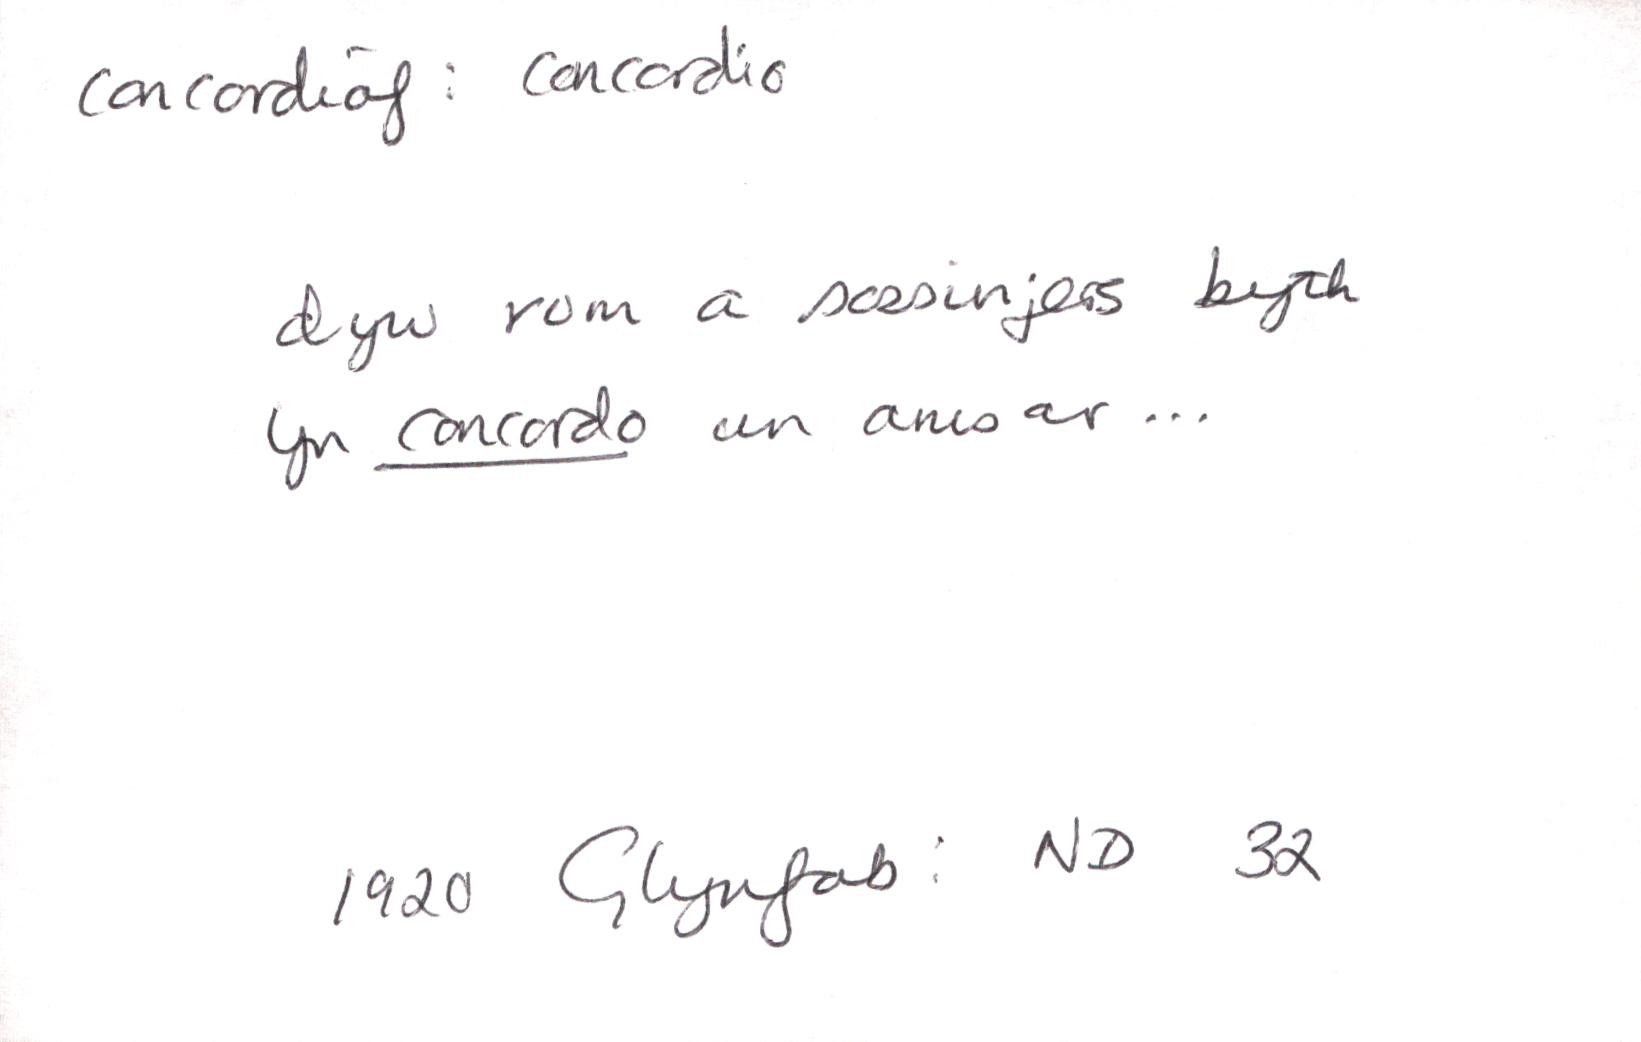 concordiaf : concordio
dyw rom a sossinjers byth
yn concordo un amsar ...
1920 Glynfab : ND 32